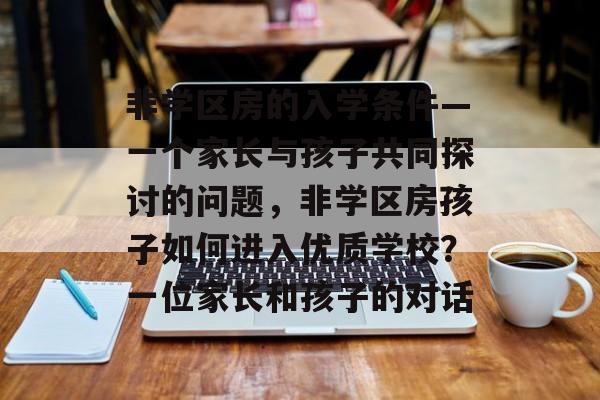 非学区房的入学条件—
一个家长与孩子共同探
讨的问题，非学区房孩
子如何进入优质学校？
一位家长和孩子的对话